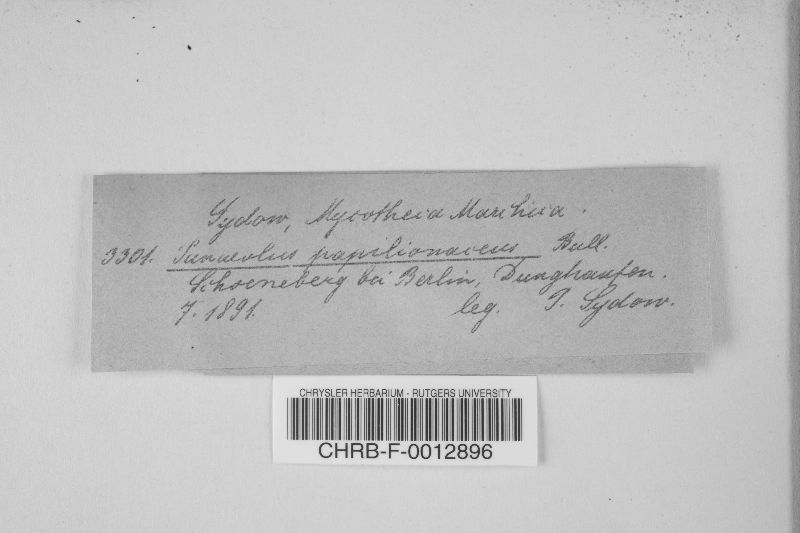 Sydow, Mycotheca Marchica.
3301. Panaeolus papilionaceus Bull.
Schoeneberg bei Berlin, Dunghaufen.
7. 1891. leg. P. Sydow.
CHRYSLER HERBARIUM - RUTGERS UNIVERSITY
CHRB-F-0012896